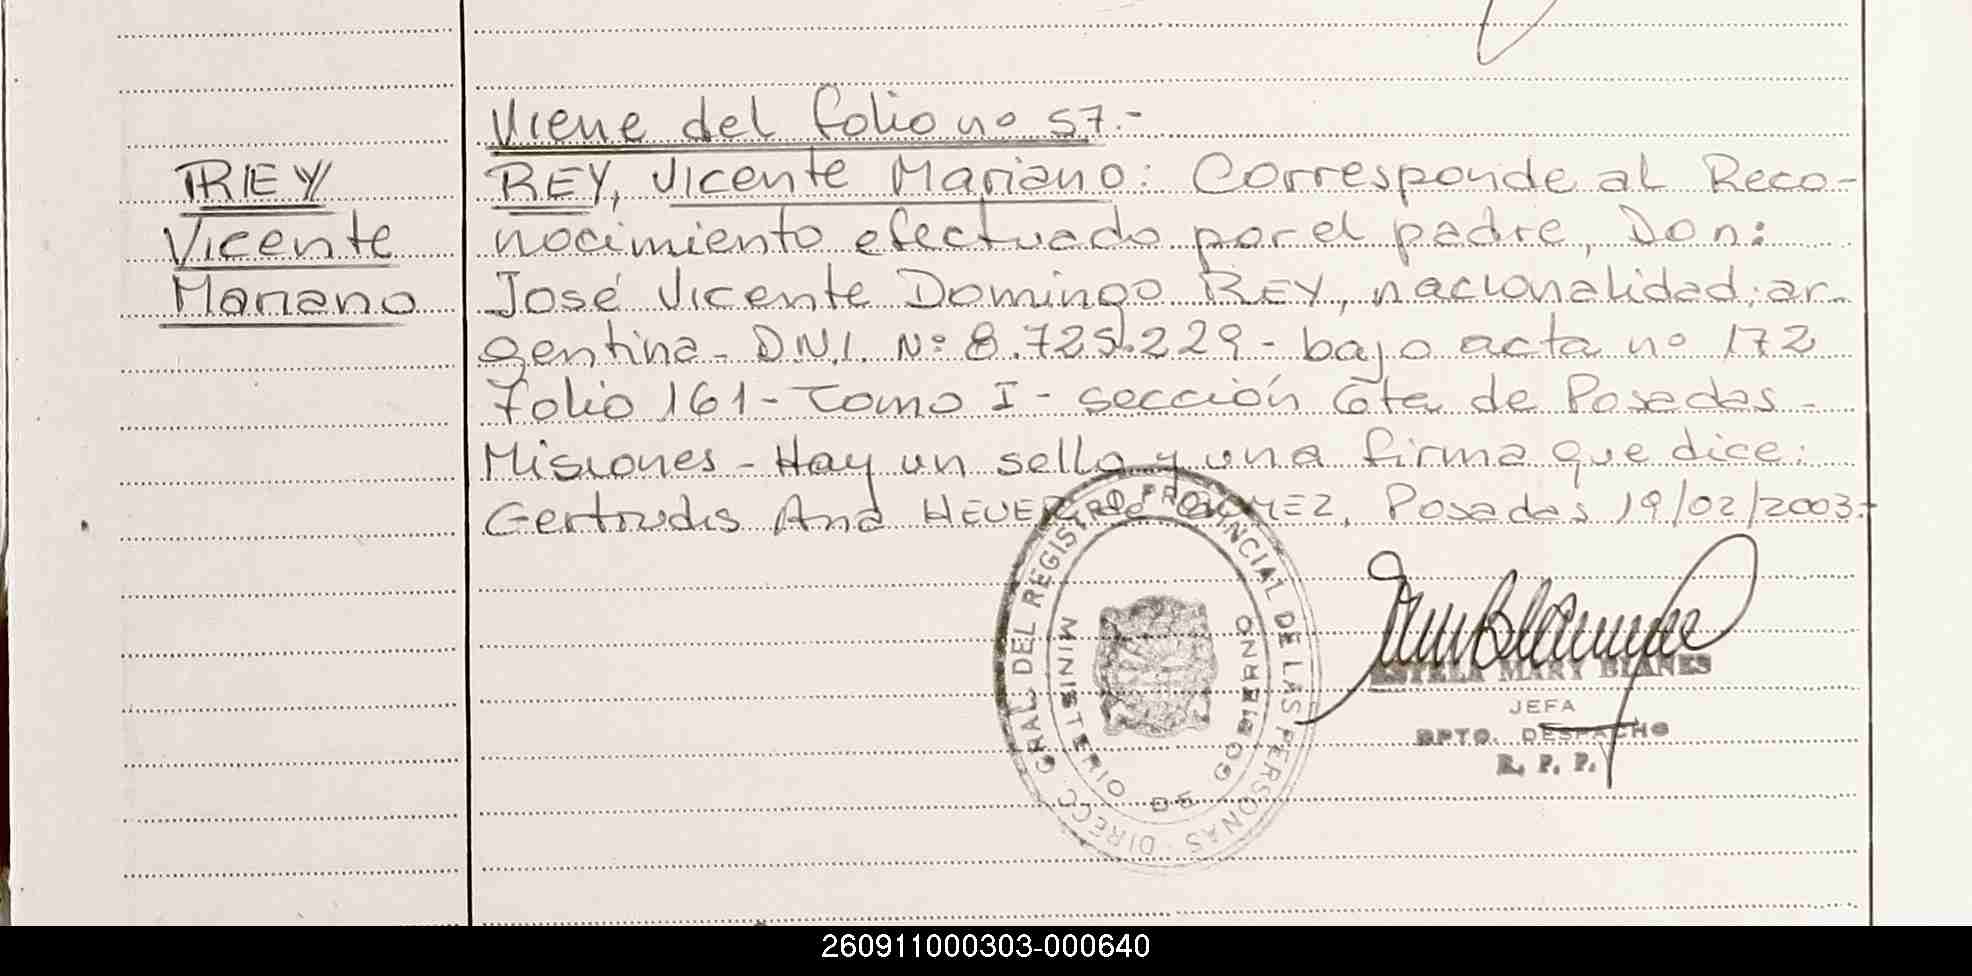 Viene del folio nº 57.-
REY
Vicente
Mariano
REY, Vicente Mariano: Corresponde al Reco-
nocimiento efectuado por el padre, Don:
José Vicente Domingo REY, nacionalidad: ar-
gentina - D.N.I. Nº 8.725.229 - bajo acta nº 172
folio 161 - Tomo I - sección 6ta de Posadas -
Misiones - Hay un sello y una firma que dice:
Gertrudis Ana HEUER de GOMEZ, Posadas 19/02/2003.-
DIRECC. GRAL. DEL REGISTRO PROVINCIAL DE LAS PERSONAS
MINISTERIO DE GOBIERNO
ESTELA MARY BLANES
JEFA
DPTO. DESPACHO
R. P. P.
260911000303-000640